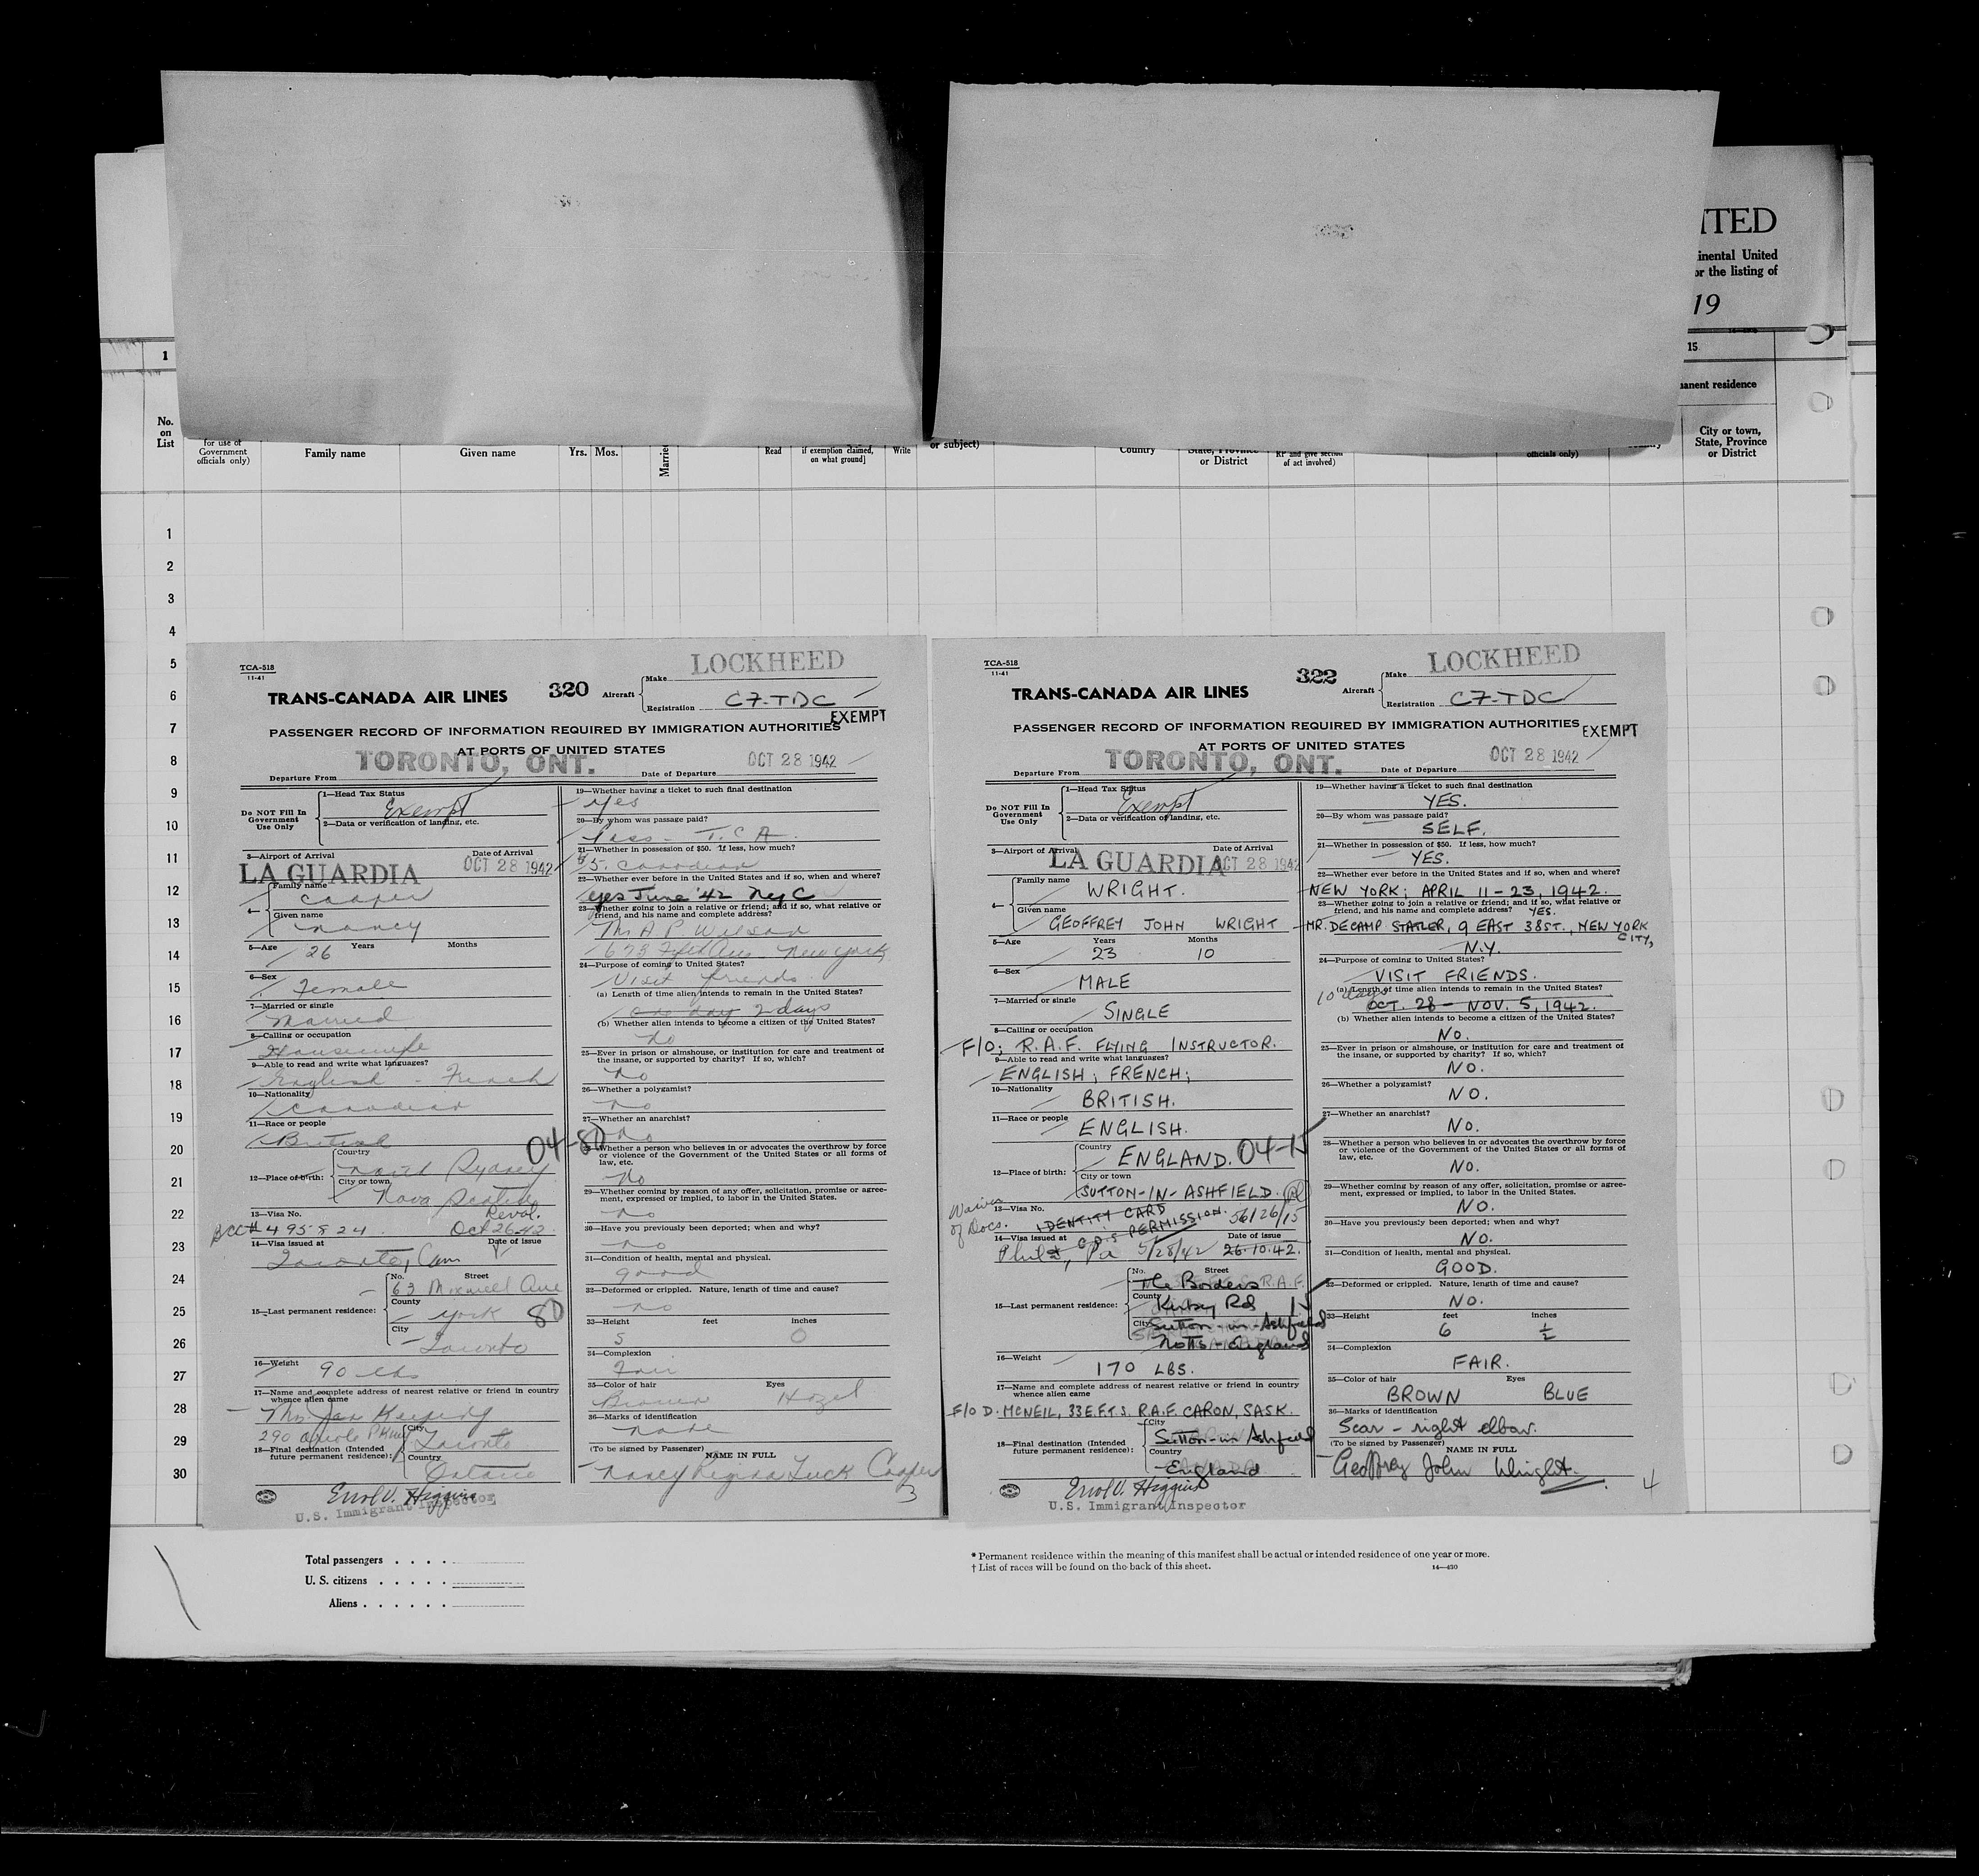 ITED
inental United
or the listing of
19
1
15
anent residence
No.
on
List
for use of
Government
officials only)
Family name
Given name
Yrs. Mos.
Married
Read
if exemption claimed,
on what ground]
Write
or subject)
Country
State, Province
or District
RP and give section
of act involved)
officials only)
City or town,
State, Province
or District
1
2
3
4
5
6
7
8
9
10
11
12
13
14
15
16
17
18
19
20
21
22
23
24
25
26
27
28
29
30
TCA-518
11-41
LOCKHEED
TRANS-CANADA AIR LINES
320
Aircraft
Make
Registration
CF-TDC
EXEMPT
PASSENGER RECORD OF INFORMATION REQUIRED BY IMMIGRATION AUTHORITIES
AT PORTS OF UNITED STATES
Departure From
TORONTO, ONT.
Date of Departure
OCT 28 1942
Do NOT Fill In
Government
Use Only
1—Head Tax Status
Exempt
2—Data or verification of landing, etc.
3—Airport of Arrival
Date of Arrival
LA GUARDIA
OCT 28 1942
4—
Family name
Cooper
Given name
Nancy
5—Age
Years
Months
26
6—Sex
Female
7—Married or single
Married
8—Calling or occupation
Housewife
9—Able to read and write what languages?
English - French
10—Nationality
Canadian
11—Race or people
British
04-80
12—Place of birth:
Country
North Sydney
City or town
Nova Scotia
13—Visa No.
Reval.
BCC# 495824
Oct 26-42
14—Visa issued at
Date of issue
Toronto, Can
15—Last permanent residence:
No.
Street
63 Maxwell Ave
County
York
80
City
Toronto
16—Weight
90 lbs
17—Name and complete address of nearest relative or friend in country
whence alien came
290 Oriole Pkwy
18—Final destination (Intended
future permanent residence):
City
Toronto
Country
Ontario
Errol V. Higgins
U.S. Immigrant Inspector
19—Whether having a ticket to such final destination
Yes
20—By whom was passage paid?
Pass - T.C.A.
21—Whether in possession of $50. If less, how much?
$5. Canadian
22—Whether ever before in the United States and if so, when and where?
yes June '42 NyC
23—Whether going to join a relative or friend; and if so, what relative or
friend, and his name and complete address?
A P. Wilson
Fifth Ave - New York
24—Purpose of coming to United States?
Visit friends
(a) Length of time alien intends to remain in the United States?
one day 2 days
(b) Whether alien intends to become a citizen of the United States?
No
25—Ever in prison or almshouse, or institution for care and treatment of
the insane, or supported by charity? If so, which?
No
26—Whether a polygamist?
No
27—Whether an anarchist?
No
28—Whether a person who believes in or advocates the overthrow by force
or violence of the Government of the United States or all forms of
law, etc.
No
29—Whether coming by reason of any offer, solicitation, promise or agree-
ment, expressed or implied, to labor in the United States.
No
30—Have you previously been deported; when and why?
No
31—Condition of health, mental and physical.
good
32—Deformed or crippled. Nature, length of time and cause?
No
33—Height
feet
inches
5
0
34—Complexion
Fair
35—Color of hair
Eyes
Brown
Hazel
36—Marks of identification
None
(To be signed by Passenger)
NAME IN FULL
Nancy Regina Luck Cooper
3
TCA-518
11-41
LOCKHEED
TRANS-CANADA AIR LINES
322
Aircraft
Make
Registration
CF-TDC
EXEMPT
PASSENGER RECORD OF INFORMATION REQUIRED BY IMMIGRATION AUTHORITIES
AT PORTS OF UNITED STATES
Departure From
TORONTO, ONT.
Date of Departure
OCT 28 1942
Do NOT Fill In
Government
Use Only
1—Head Tax Status
Exempt
2—Data or verification of landing, etc.
3—Airport of Arrival
Date of Arrival
LA GUARDIA
OCT 28 1942
4—
Family name
WRIGHT.
Given name
GEOFFREY JOHN WRIGHT
5—Age
Years
Months
23
10
6—Sex
MALE
7—Married or single
SINGLE
8—Calling or occupation
F/O; R.A.F. FLYING INSTRUCTOR.
9—Able to read and write what languages?
ENGLISH; FRENCH;
10—Nationality
BRITISH.
11—Race or people
ENGLISH.
04-15
12—Place of birth:
Country
ENGLAND.
City or town
SUTTON-IN-ASHFIELD.
Waiver
of Docs.
13—Visa No.
IDENTITY CARD
PERMISSION.
56126/15
14—Visa issued at
Date of issue
Phila, Pa 5/28/42
26.10.42.
15—Last permanent residence:
No.
Street
The Borders
R.A.F.
County
Kirby Rd
15
City
Sutton-in-Ashfield
Notts - England
16—Weight
170 LBS.
17—Name and complete address of nearest relative or friend in country
whence alien came
F/O D. MCNEIL, 33 E.F.T.S. R.A.F. CARON, SASK.
18—Final destination (Intended
future permanent residence):
City
Sutton-in Ashfield
Country
England
Errol V. Higgins
U.S. Immigrant Inspector
19—Whether having a ticket to such final destination
YES.
20—By whom was passage paid?
SELF.
21—Whether in possession of $50. If less, how much?
YES.
22—Whether ever before in the United States and if so, when and where?
NEW YORK; APRIL 11-23, 1942.
23—Whether going to join a relative or friend; and if so, what relative or
friend, and his name and complete address?
YES.
MR. DECAMP STATLER, 9 EAST 38ST., NEW YORK
CITY,
N.Y.
24—Purpose of coming to United States?
VISIT FRIENDS.
(a) Length of time alien intends to remain in the United States?
10 days
OCT. 28 - NOV. 5, 1942.
(b) Whether alien intends to become a citizen of the United States?
NO.
25—Ever in prison or almshouse, or institution for care and treatment of
the insane, or supported by charity? If so, which?
NO.
26—Whether a polygamist?
NO.
27—Whether an anarchist?
NO.
28—Whether a person who believes in or advocates the overthrow by force
or violence of the Government of the United States or all forms of
law, etc.
NO.
29—Whether coming by reason of any offer, solicitation, promise or agree-
ment, expressed or implied, to labor in the United States.
NO.
30—Have you previously been deported; when and why?
NO.
31—Condition of health, mental and physical.
GOOD.
32—Deformed or crippled. Nature, length of time and cause?
NO.
33—Height
feet
inches
6
½
34—Complexion
FAIR.
35—Color of hair
Eyes
BROWN
BLUE
36—Marks of identification
Scar - right elbow.
(To be signed by Passenger)
NAME IN FULL
Geoffrey John Wright.
4
Total passengers . . . .
U. S. citizens . . . . .
Aliens . . . . . .
* Permanent residence within the meaning of this manifest shall be actual or intended residence of one year or more.
† List of races will be found on the back of this sheet.
14—430